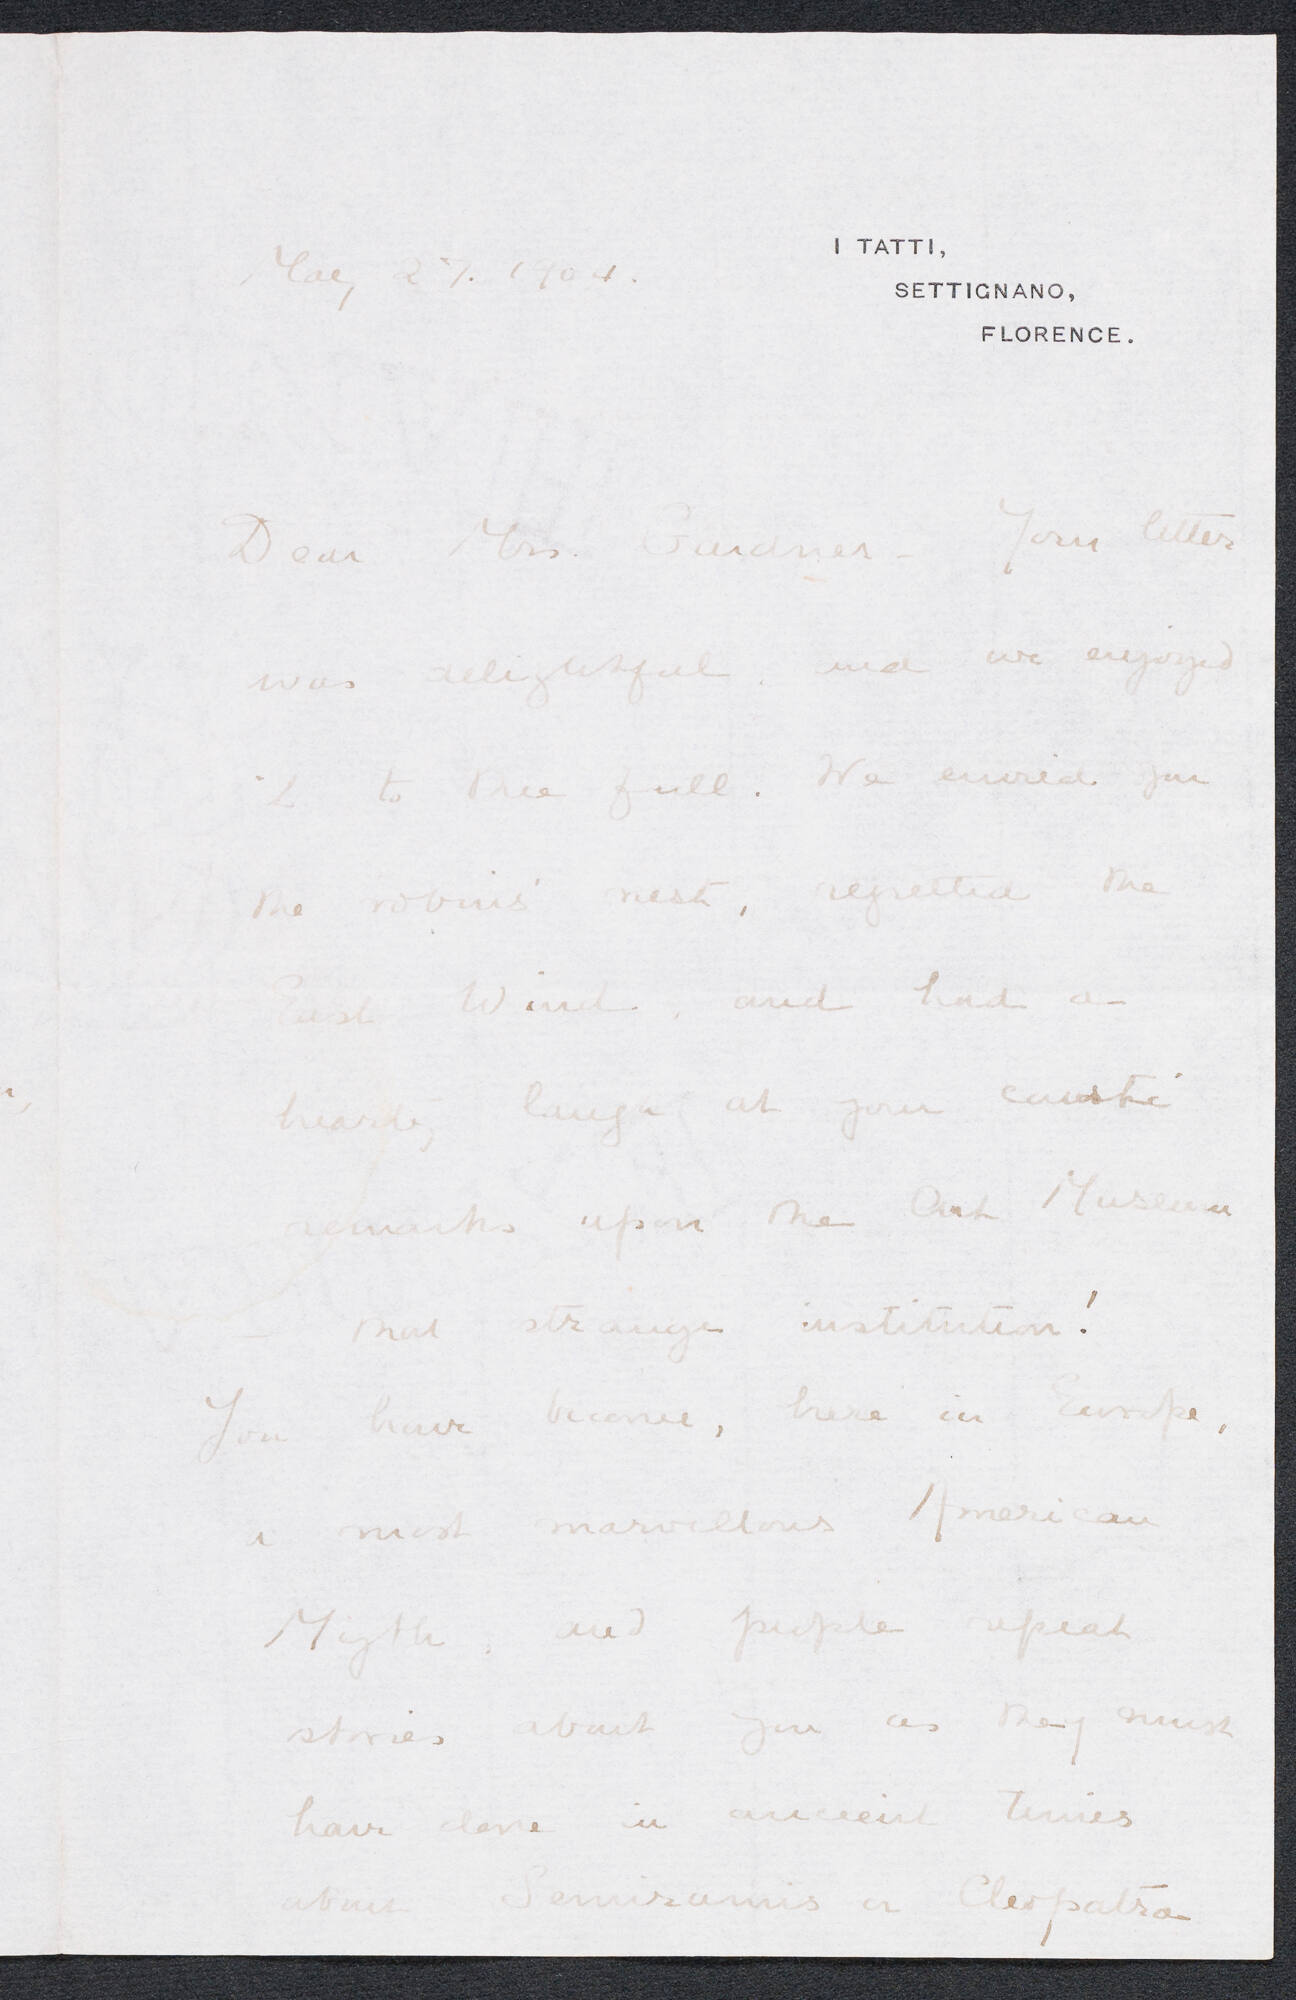 May 27. 1904.
I TATTI,
SETTIGNANO,
FLORENCE.
Dear Mrs. Gardner - Your letter
was delightful, and we enjoyed
it to the full. We envied you
the robins' nest, regretted the
East Wind, and had a
hearty laugh at your caustic
remarks upon the Art Museum
- that strange institution!
You have become, here in Europe,
a most marvellous American
Myth, and people repeat
stories about you as they must
have done in ancient times
about Semiramis or Cleopatra